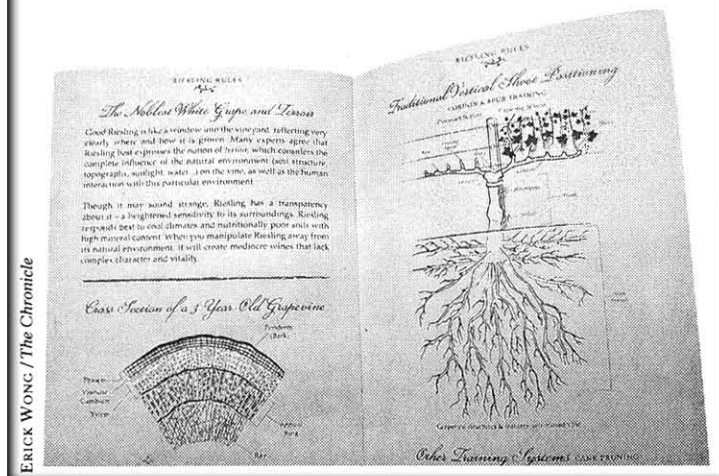 ERICK WONG / The Chronicle
RIESLING RULES
The Noblest White Grape and Terroir
Good Riesling is like a window into the vineyard, reflecting very
clearly where and how it is grown. Many experts agree that
Riesling best expresses the notion of terroir, which considers the
complete influence of the natural environment (soil structure,
topography, sunlight, water...) on the vine, as well as the human
interaction with this particular environment.
Though it may sound strange, Riesling has a transparency
about it – a heightened sensitivity to its surroundings. Riesling
responds best to cool climates and nutritionally poor soils with
high mineral content. When you manipulate Riesling away from
its natural environment, it will create mediocre wines that lack
complex character and vitality.
Cross Section of a 3 Year-Old Grapevine
Periderm
(Bark)
Phloem
Vascular
Cambium
Xylem
Annual
Ring
Ray
RIESLING RULES
Traditional Vertical Shoot Positioning
CORDON & SPUR TRAINING
Trunk
Grapevine structures & features
Other Training Systems CANE PRUNING